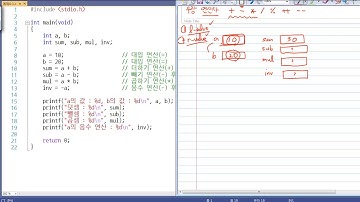 #include <stdio.h>
int main(void)
{
int a, b;
int sum, sub, mul, inv;
a = 10; // 대입 연산(=)
b = 20; // 대입 연산(=)
sum = a + b; // 더하기 연산(+)
sub = a - b; // 빼기 연산(-) 후
mul = a * b; // 곱하기 연산(*)
inv = -a; // 음수 연산(-) 후
printf("a의 값 : %d, b의 값 : %d\n", a, b);
printf("덧셈 : %d\n", sum);
printf("뺄셈 : %d\n", sub);
printf("곱셈 : %d\n", mul);
printf("a의 음수 연산 : %d\n", inv);
return 0;
}
+ - * / % ++ --
a 10 sum 30
b 20 sub
mul
inv